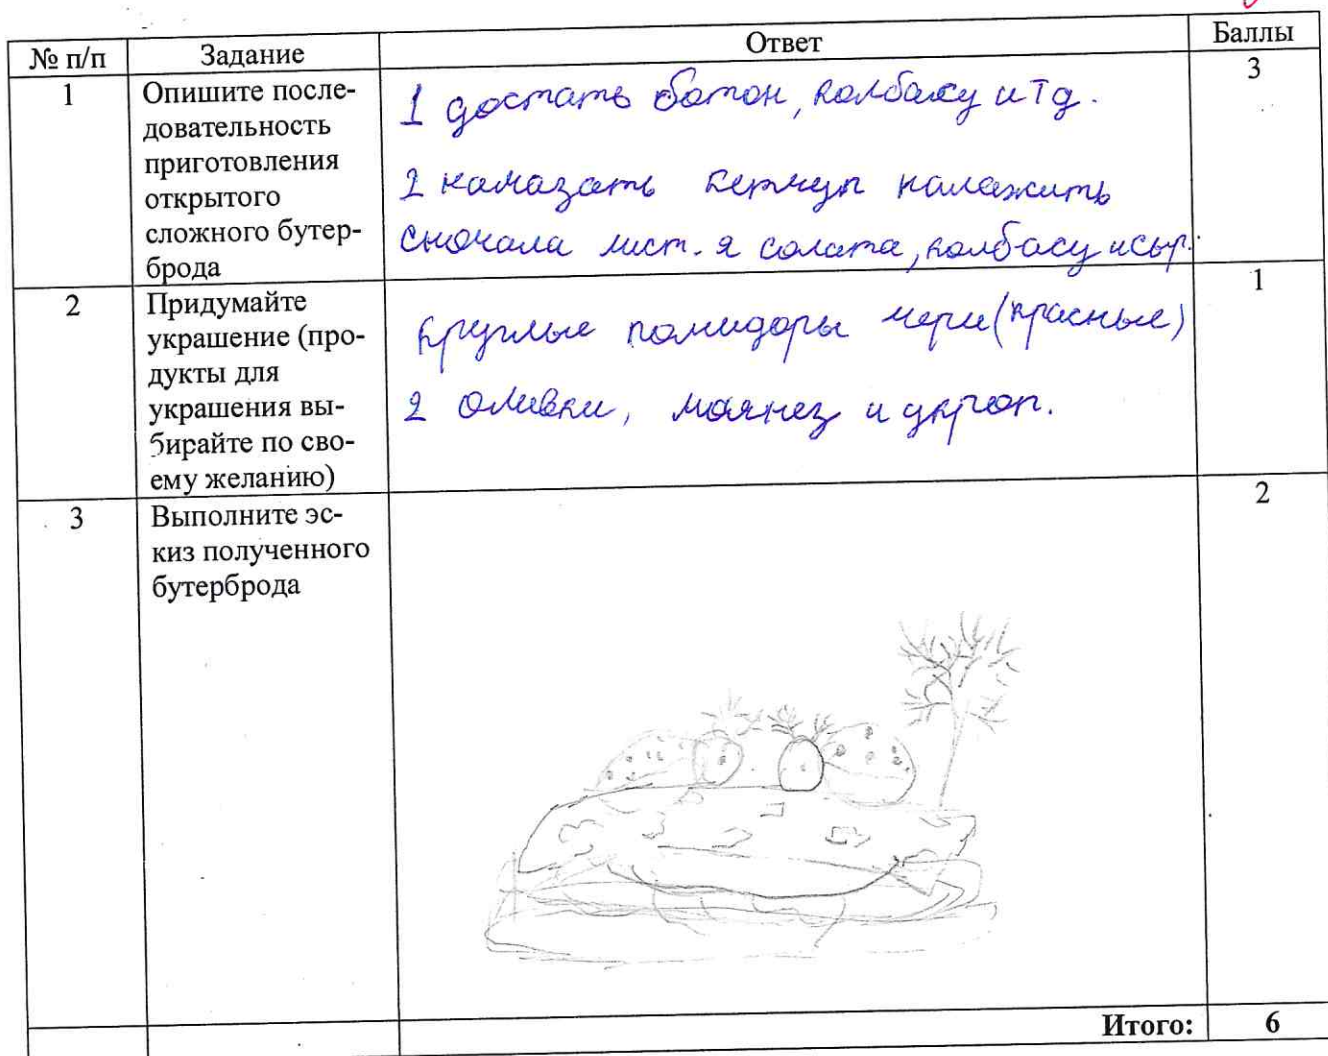 № п/п Задание Ответ Баллы
1 Опишите после-
довательность
приготовления
открытого
сложного бутер-
брода
1 достать батон, колбасу и тд.
2 намазать кетчуп налажить
сночала лист.я солата, колбасу и сыр.
3
2 Придумайте
украшение (про-
дукты для
украшения вы-
бирайте по сво-
ему желанию)
круглые помидоры чери (красные)
2 оливки, маянез и укроп.
1
3 Выполните эс-
киз полученного
бутерброда
2
Итого: 6